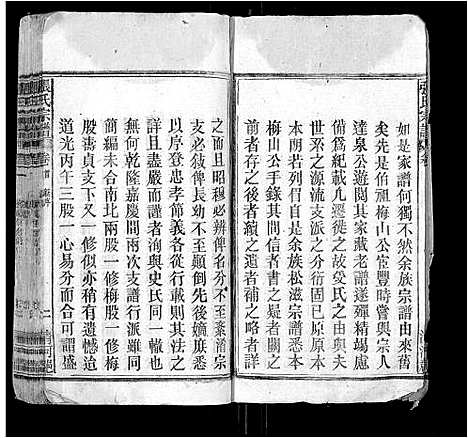 如是家譜何獨不然余族宗譜由來舊
矣先是伯祖梅山公宦豐時嘗與宗人
達泉公遊閱其家藏老譜遂殫精竭慮
備爲紀載凡遷徙之故受氏之由以及
世系之源流支派之分合固已原原本
本有典有則於是余族松滋宗譜悉以
梅山公手錄其間信者書之疑者關之
前者存之後者續之遺者補之略者詳
之而且昭穆必辨俾名分不至紊淆宗
支必敘俾長幼不至顛倒先後嫡庶悉
以序登忠孝節義各從行載則其法之
詳且盡嚴而謹者洵與史氏同一轍也
無何乾隆嘉慶間兩次支譜行派雖同
簡編未合南北兩股一修梅股一修梅
股壽貞支下又一修似亦稍有遺憾迨
道光丙午三股一心易分而合可謂盛
張氏宗譜
卷首
二
清河堂